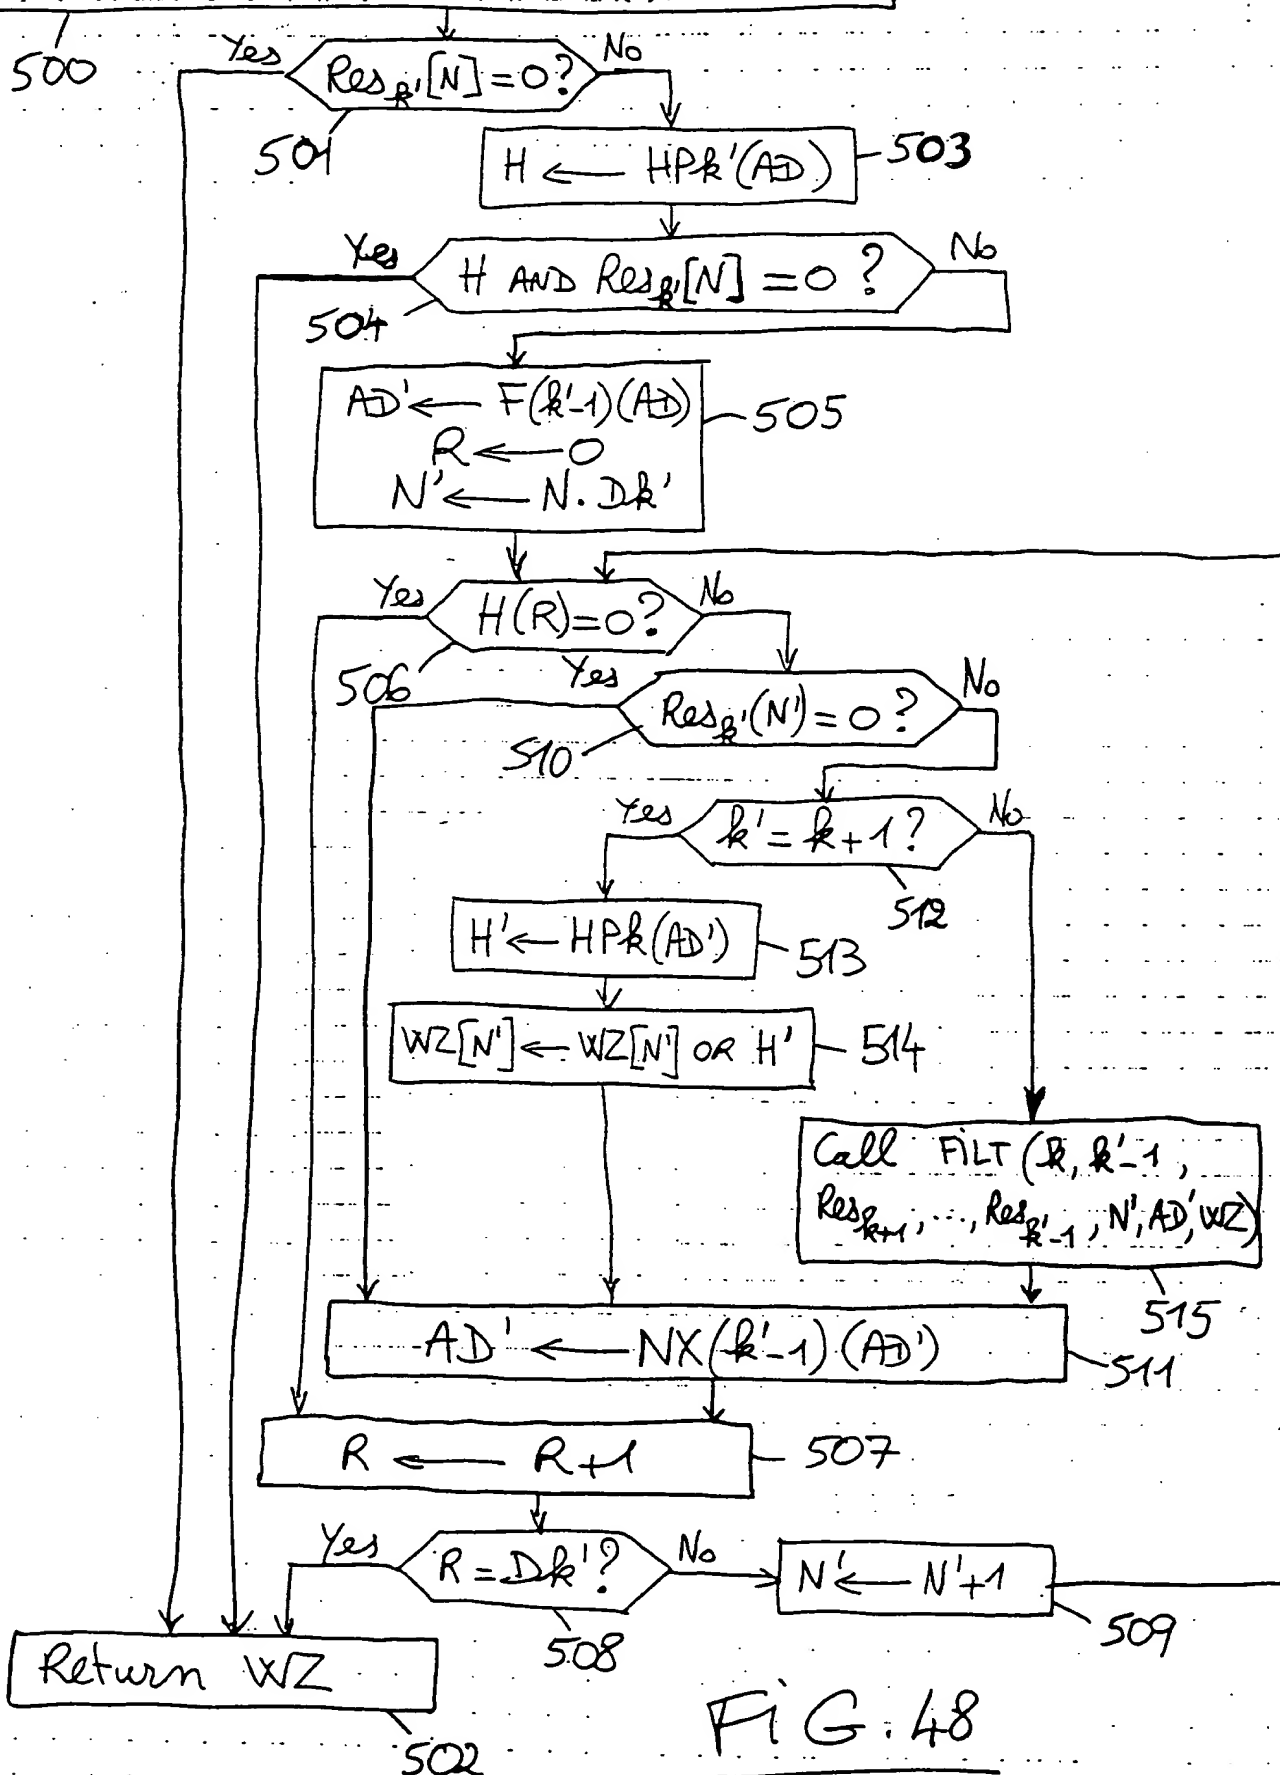 500
Yes
Res_k'[N] = 0?
No
501
H ← HPk'(AD)
503
Yes
H AND Res_k'[N] = 0 ?
No
504
AD' ← F(k'-1)(AD)
R ← 0
N' ← N. Dk'
505
Yes
H(R)=0?
No
506
Yes
Res_k'(N') = 0 ?
No
510
Yes
k' = k+1?
No
512
H' ← HPk(AD')
513
WZ[N'] ← WZ[N'] OR H'
514
Call FILT (k, k'-1,
Res_k+1, ..., Res_k'-1, N', AD', WZ)
515
AD' ← NX(k'-1)(AD')
511
R ← R+1
507
Yes
R = Dk'?
No
508
N' ← N'+1
509
Return WZ
502
FiG. 48